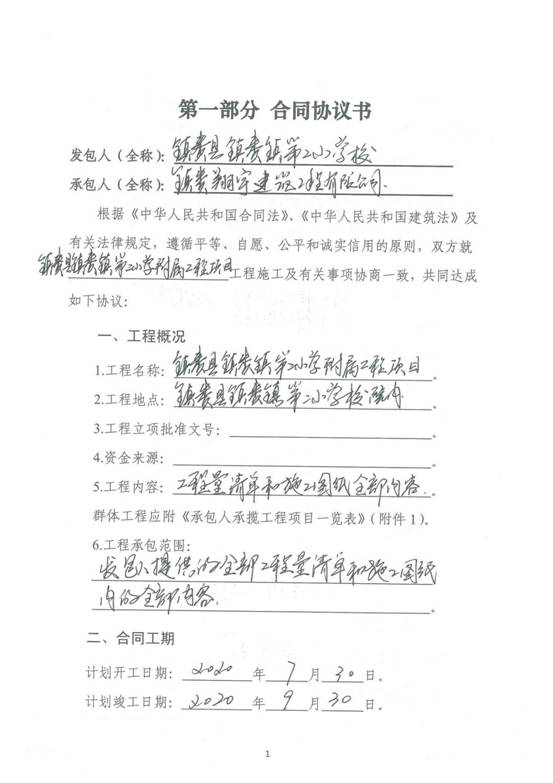 第一部分 合同协议书
发包人（全称）：镇赉县镇赉镇第二小学校
承包人（全称）：镇赉翔宇建筑工程有限公司.
根据《中华人民共和国合同法》、《中华人民共和国建筑法》及
有关法律规定，遵循平等、自愿、公平和诚实信用的原则，双方就
镇赉县镇赉镇第二小学附属工程项目工程施工及有关事项协商一致，共同达成
如下协议：
一、工程概况
1.工程名称：镇赉县镇赉镇第二小学附属工程项目。
2.工程地点：镇赉县镇赉镇第二小学校院内。
3.工程立项批准文号：。
4.资金来源：。
5.工程内容：工程量清单和施工图纸全部内容.。
群体工程应附《承包人承揽工程项目一览表》（附件 1）。
6.工程承包范围：
发包人提供的全部工程量清单和施工图纸
内的全部内容.。
二、合同工期
计划开工日期：2020 年 7 月 30 日。
计划竣工日期：2020 年 9 月 30 日。
1